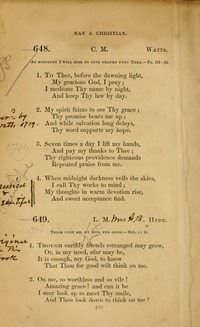 MAN A CHRISTIAN.
648. C. M. WATTS.
AT MIDNIGHT I WILL RISE TO GIVE THANKS UNTO THEE.—PS. 119: 62.
1. To THEE, before the dawning light,
My gracious God, I pray;
I meditate Thy name by night,
And keep Thy law by day.
2. My spirit faints to see Thy grace;
Thy promise bears me up;
And while salvation long delays,
Thy word supports my hope.
3. Seven times a day I lift my hands,
And pay my thanks to Thee;
Thy righteous providence demands
Repeated praise from me.
4. When midnight darkness veils the skies,
I call Thy works to mind;
My thoughts in warm devotion rise,
And sweet acceptance find.
649. L. M. Mrs HYDE.
THINK UPON ME, MY GOD, FOR GOOD.—NEH.
1. THOUGH earthly friends estranged may grow,
Or, in my need, afar may be,
It is enough, my God, to know
That Thou for good wilt think on me.
2. On me, so worthless and so vile!
Amazing grace! and can it be
I may look up to meet Thy smile,
And Thou look down to think on me?
1719